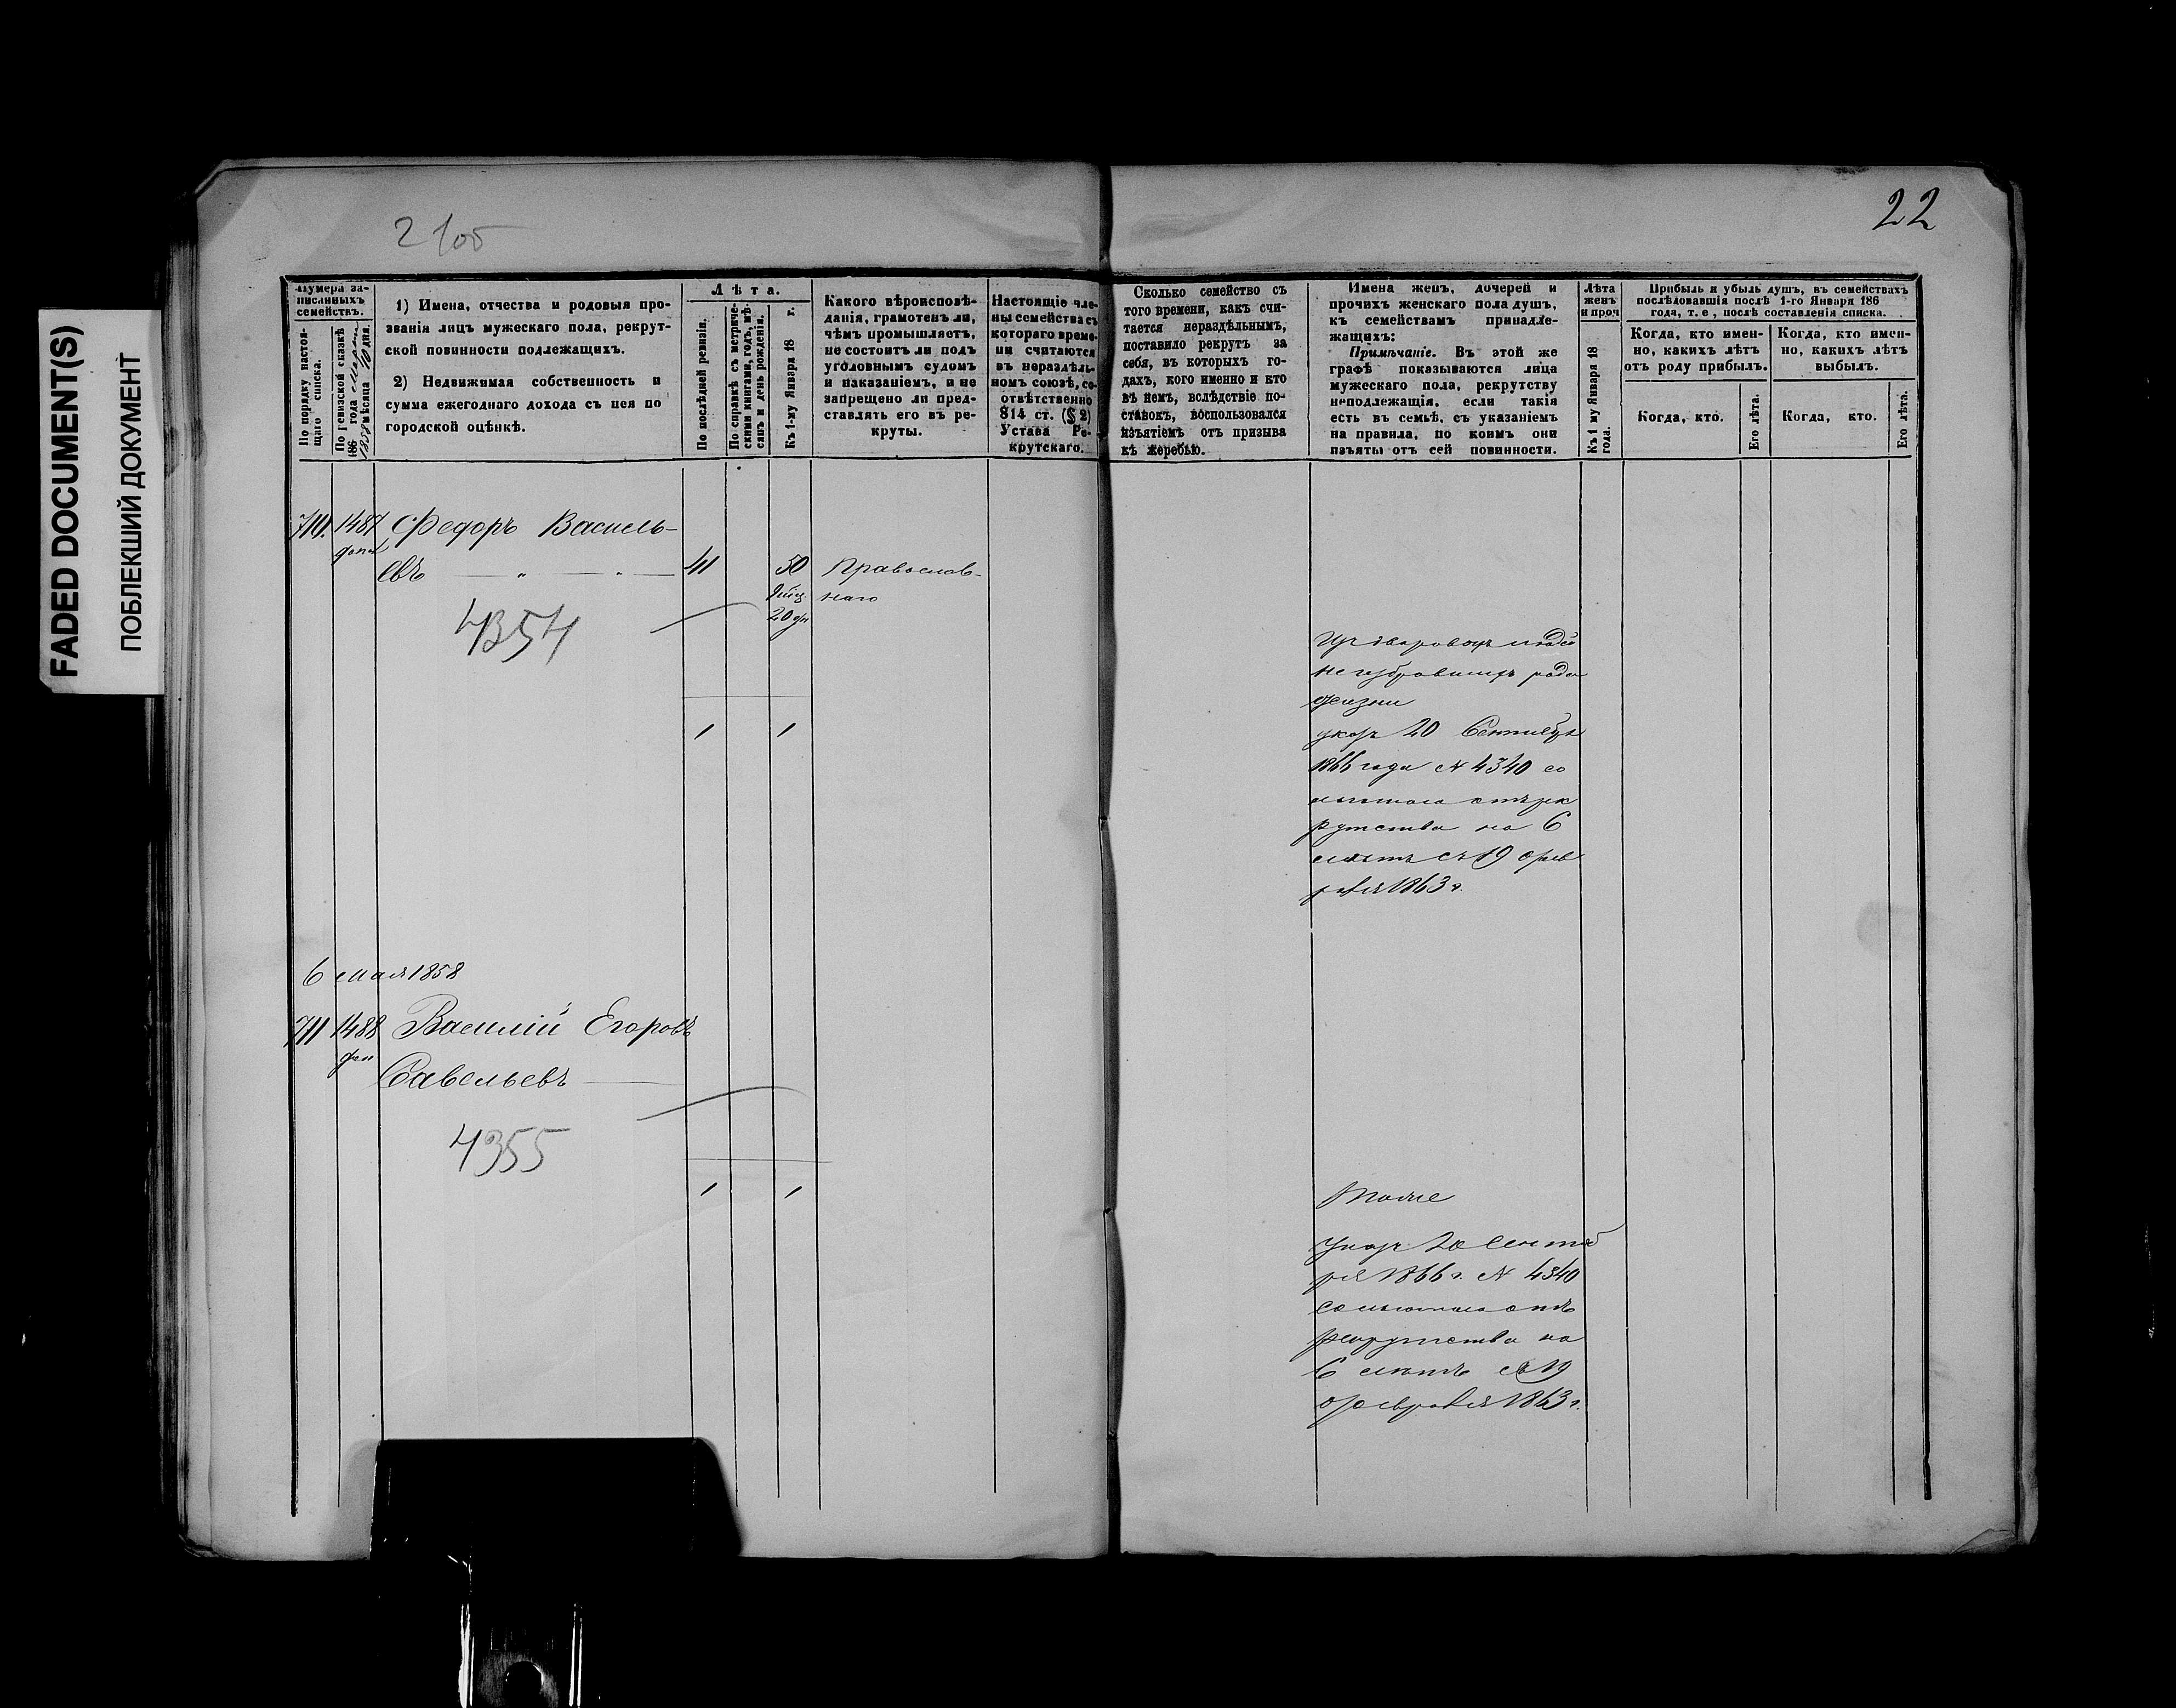 FADED DOCUMENT(S)
ПОБЛЕКШИЙ ДОКУМЕНТ
2 100
22
Нумера за-
писанныхъ
семействъ.
По порядку настоя-
щаго списка.
По ревизской сказкѣ
186 года Марта
1858 мѣсяца 10 дня.
1) Имена, отчества и родовыя про-
званія лицъ мужескаго пола, рекрут-
ской повинности подлежащихъ.
2) Недвижимая собственность и
сумма ежегоднаго дохода съ нея по
городской оцѣнкѣ.
Лѣта.
По послѣдней ревизіи.
По справкѣ съ метриче-
скими книгами, годъ, мѣ-
сяцъ и день рожденія.
Къ 1-му Января 18 г.
Какого вѣроисповѣ-
данія, грамотенъ ли,
чѣмъ промышляетъ,
не состоитъ ли подъ
уголовнымъ судомъ
и наказаніемъ, и не
запрещено ли пред-
ставлять его въ ре-
круты.
Настоящіе чле-
ны семейства съ
котораго време-
ни считаются
въ нераздѣль-
номъ союзѣ, со-
отвѣтственно
814 ст. (§ 2)
Устава Ре-
крутскаго.
Сколько семейство съ
того времени, какъ счи-
тается нераздѣльнымъ,
поставило рекрутъ за
себя, въ которыхъ го-
дахъ, кого именно и кто
въ немъ, вслѣдствіе по-
ставокъ, воспользовался
изъятіемъ отъ призыва
къ жеребью.
Имена женъ, дочерей и
прочихъ женскаго пола душъ,
къ семействамъ принадле-
жащихъ:
Примѣчаніе. Въ этой же
графѣ показываются лица
мужескаго пола, рекрутству
неподлежащія, если такія
есть въ семьѣ, съ указаніемъ
на правила, по коимъ они
изъяты отъ сей повинности.
Лѣта
женъ
и проч
Къ 1 му Января 18
года.
Прибыль и убыль душъ, въ семействахъ
послѣдовавшія послѣ 1-го Января 186
года, т. е., послѣ составленія списка.
Когда, кто имен-
но, какихъ лѣтъ
отъ роду прибылъ.
Когда, кто.
Его лѣта.
Когда, кто имен-
но, какихъ лѣтъ
выбылъ.
Когда, кто.
Его лѣта.
710. 1487 Федоръ Василь-
доп
евъ 41 50 Православ-
наго
20 дн
4354
Изъ дворовыхъ людей
неизбравшихъ рода
жизни
указъ 20 Сентября
1866 года № 4340 со
льготою отъ рек
рутства на 6
лѣтъ съ 19 фев
раля 1863 г.
1 1
6 мая 1858
711 1488 Василій Егоровъ
доп
Савельевъ
4355
1 1
Тоже
Указъ 20 Сентяб
ря 1866 г. № 4340
со льготою отъ
рекрутства на
6 лѣтъ съ 19
февраля 1863 г.